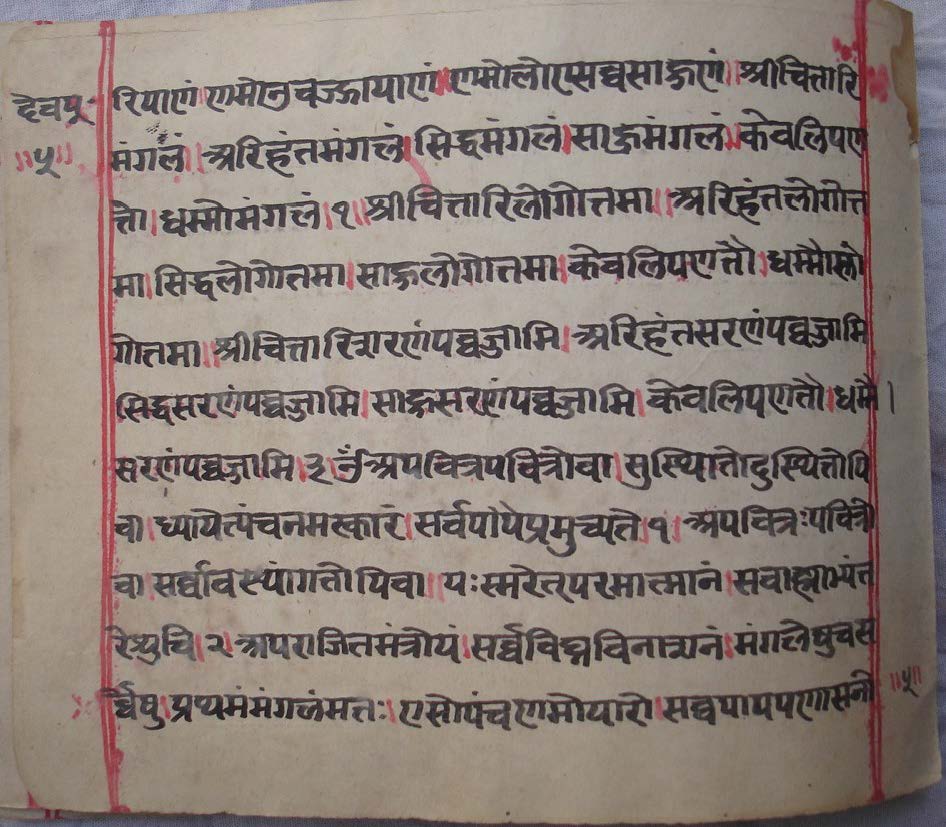 देवपू॰ रियाणं।णमोउवज्झायाणं।णमोलोएसव्वसाहूणं॥श्रीचित्तारि
॥५॥ मंगलं।अरिहंतमंगलं।सिद्धमंगलं।साहूमंगलं।केवलिपण
त्तो।धम्मोमंगलं।१।श्रीचित्तारिलोगोत्तमा॥अरिहंतलोगोत्त
मा।सिद्धलोगोतमा।साहूलोगोतमा।केवलिपणत्तौ।धम्मौलो
गोतमा॥श्रीचित्तारिशरणंपव्वज्जामि।अरिहंतसरणंपव्वज्जामि
सिद्धसरणंपव्वज्जामि।साहूसरणंपव्वज्जामि।केवलिपणत्तौ।धम्मै।
सरणंपव्वज्जामि।३।ॐअपवित्रपवित्रोवा।सुस्थितोदुस्थित्तोपि
वा।ध्यायेत्पंचनमस्कारं।सर्वपापैप्रमुच्यते१।अपवित्रःपवित्रो
वा।सर्व्वावस्थांगतोपिवा॥यःस्मरेत्परमात्मानं।सवाह्याभ्यंत
रेश्रुचि।२।अपराजितमंत्रोयं।सर्व्वविघ्नविनाशनं।मंगलेषुचस
र्व्वेषु।प्रथमंमंगलंमतः।एसोपंचणमोयारो।सव्वपापपणासनो ॥५॥